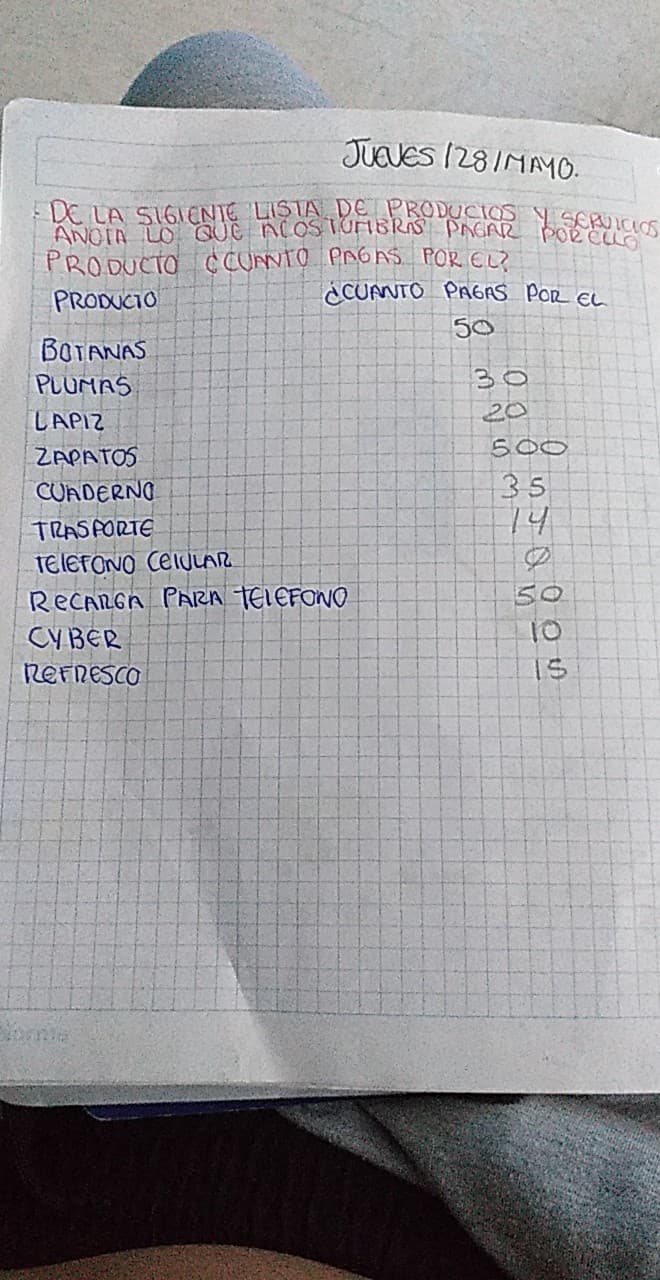 JUEVES/28/MAYO.
: DE LA SIGIENTE LISTA DE PRODUCTOS Y SERVICIOS
ANOTA LO QUE ACOSTUMBRAS PAGAR POR ELLO
PRODUCTO ¿CUANTO PAGAS POR EL?
PRODUCTO ¿CUANTO PAGAS POR EL
BOTANAS 50
PLUMAS 30
LAPIZ 20
ZAPATOS 500
CUADERNO 35
TRASPORTE 14
TELEFONO CELULAR 0
RECARGA PARA TELEFONO 50
CYBER 10
REFRESCO 15
Norma